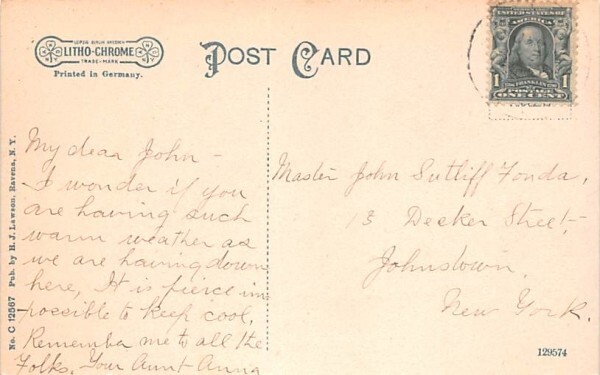 LEIPZIG BERLIN DRESDEN
LITHO-CHROME
TRADE-MARK
Printed in Germany.
POST CARD
UNITED STATES OF
AMERICA
FRANKLIN
1 POSTAGE 1
ONE CENT
No. C 12567 Pub. by H. J. Lawson, Ravena, N. Y.
My dear John –
I wonder if you
are having such
warm weather as
we are having down
here, It is fierce im
possible to keep cool,
Remember me to all the
Folks, Your Aunt Anna
Master John Sutliff Fonda,
13 Decker Street,
Johnstown,
New York.
129574